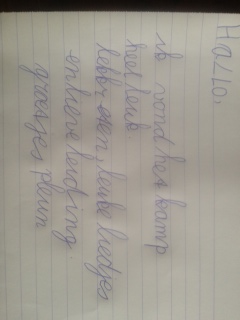 Hallo,
ik vond het kamp
heel leuk
lekker eten, leuke liedjes
en lieve leiding.
groetjes pleun